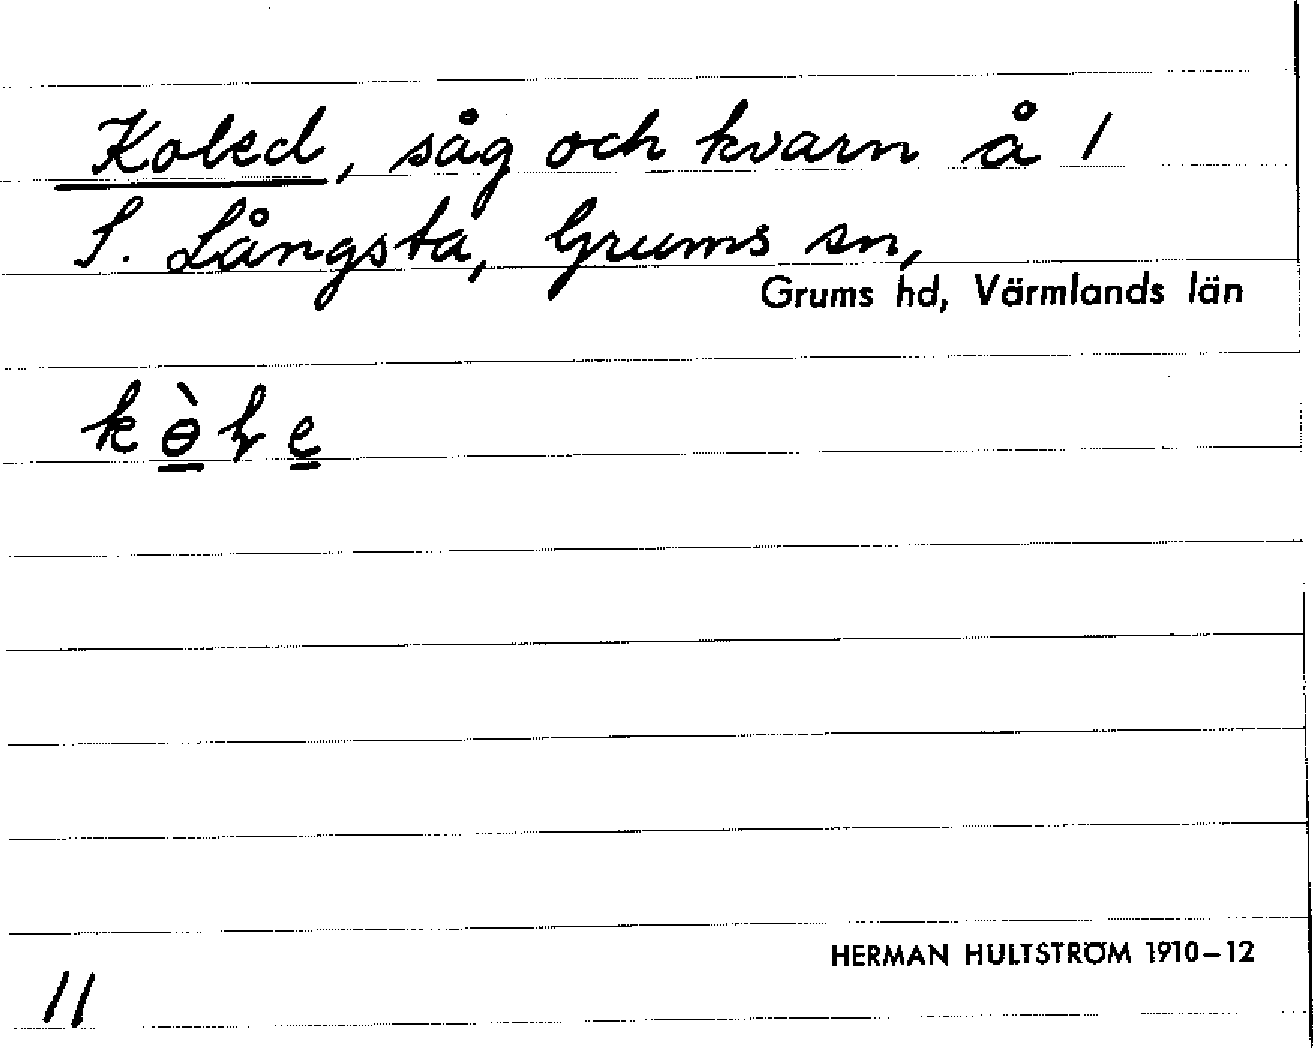 Koled, såg och kvarn å /
S. Långsta, Grums sn,
Grums hd, Värmlands län
HERMAN HULTSTRÖM 1910–12
11